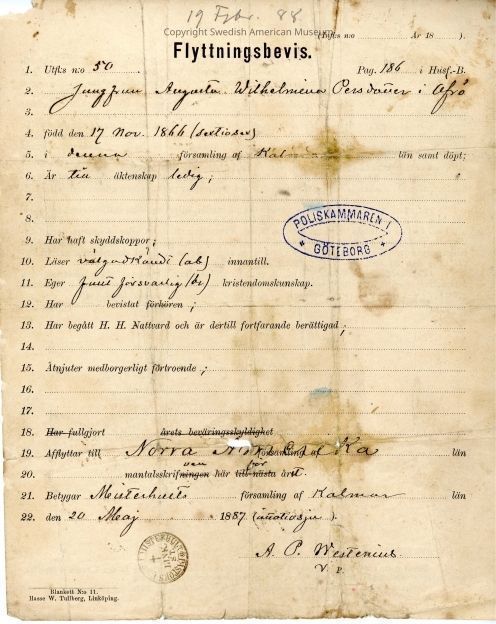 19 Febr. 88
Copyright Swedish American Museum
(Utfls n:o År 18 ).
Flyttningsbevis.
1. Utfls n:o 50 Pag. 186 i Husf.-B.
2. Jungfrun Augusta Wilhelmina Persdotter i
3.
4. född den 17 Nov. 1866 (sextiosex)
5. i denna församling af Kalmar län samt döpt;
6. Är till äktenskap ledig;
7.
8.
POLISKAMMAREN I
GÖTEBORG
9. Har haft skyddskoppor;
10. Läser välgodkändt (ab) innantill.
11. Eger försvarlig kristendomskunskap.
12. Har bevistat förhören;
13. Har begått H. H. Nattvard och är dertill fortfarande berättigad;
14.
15. Åtnjuter medborgerligt förtroende;
16.
17.
18. Har fullgjort årets beväringsskyldighet
19. Afflyttar till Norra Amerika församling af län
20. mantalsskrifven här för till nästa året.
21. Betygar Misterhults församling af Kalmar län
22. den 20 Maj 1887
A. P. Westenius
V. P.
Blankett N:o 11.
Hasse W. Tullberg, Linköping.